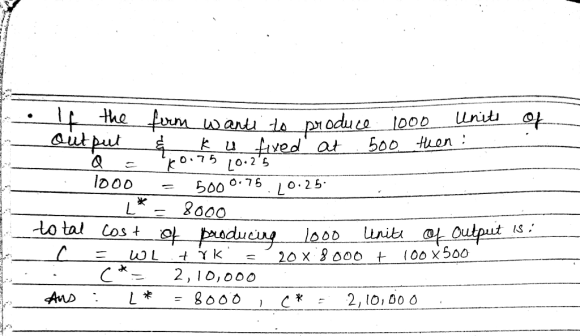 • If the firm wants to produce 1000 Units of
output & K is fixed at 500 then :
Q = K^0.75 L^0.25
1000 = 500^0.75 . L^0.25
L* = 8000
total cost of producing 1000 Units of Output is :
C = WL + rK = 20 x 8000 + 100 x 500
C* = 2,10,000
Ans : L* = 8000 , C* = 2,10,000